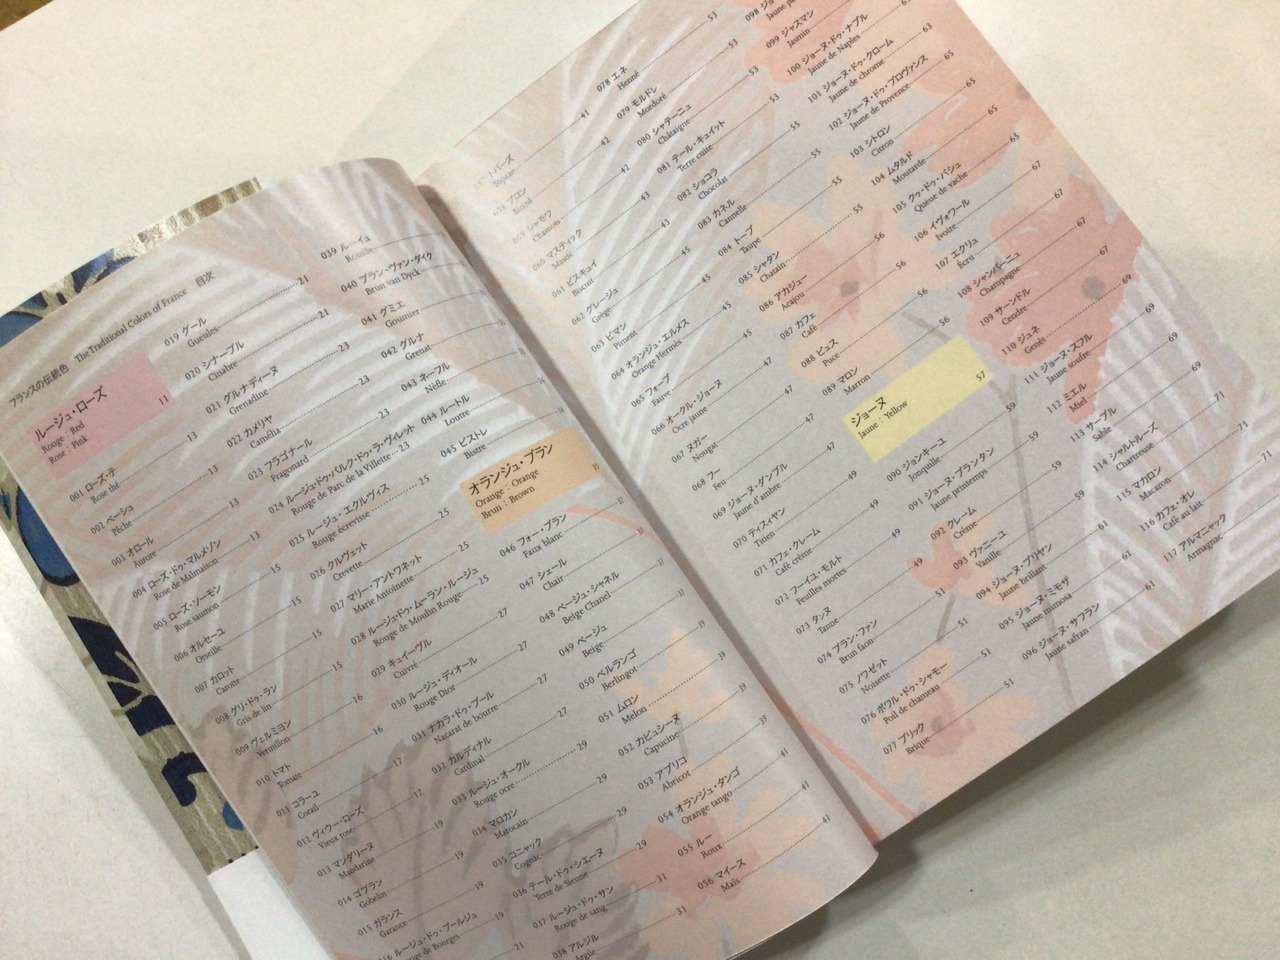 フランスの伝統色 The Traditional Colors of France 目次
ルージュ・ローズ
Rouge : Red
Rose : Pink 11
001 ローズ・テ
Rose thé 13
002 ペーシュ
Pêche 13
003 オロール
Aurore 13
004 ローズ・ドゥ・マルメゾン
Rose de Malmaison 13
005 ローズ・ソーモン
Rose saumon 15
006 オルセーユ
Orseille 15
007 カロット
Carotte 15
008 グリ・ドゥ・ラン
Gris de lin 15
009 ヴェルミヨン
Vermillon 16
010 トマト
Tomate 16
011 コラーユ
Corail 17
012 ヴィウー・ローズ
Vieux rose 17
013 マンダリーヌ
Mandarine 19
014 ゴブラン
Gobelin 19
015 ガランス
Garance 19
ルージュ・ドゥ・ブールジュ
de Bourges 19
21
019 グール
Gueules 21
020 シナーブル
Cinabre 21
021 グルナディーヌ
Grenadine 23
022 カメリヤ
Camélia 23
023 フラゴナール
Fragonard 23
024 ルージュ・ドゥ・パルク・ドゥ・ラ・ヴィレット
Rouge de Parc de la Villette 23
025 ルージュ・エクルヴィス
Rouge écrevisse 25
026 クルヴェット
Crevette 25
027 マリー・アントワネット
Marie Antoinette 25
028 ルージュ・ドゥ・ムーラン・ルージュ
Rouge de Moulin Rouge 25
029 キュイーヴル
Cuivré 27
030 ルージュ・ディオール
Rouge Dior 27
031 ナカラ・ドゥ・ブール
Nacarat de bourre 27
032 カルディナル
Cardinal 27
033 ルージュ・オークル
Rouge ocre 29
034 マロカン
Marocain 29
035 コニャック
Cognac 29
036 テール・ドゥ・シエーヌ
Terre de Sienne 29
037 ルージュ・ドゥ・サン
Rouge de sang 31
038 アルジル
Argile 31
039 ルーイユ
Rouille
040 ブラン・ヴァン・ダイク
Brun van Dyck
041 グミエ
Goumier
042 グルナ
Grenat
043 ネーフル
Nèfle
044 ルートル
Loutre
045 ビストレ
Bistre
オランジュ・ブラン
Orange : Orange
Brun : Brown
046 フォー・ブラン
Faux blanc
047 シェール
Chair
048 ベージュ・シャネル
Beige Chanel
049 ベージュ
Beige
050 ベルランゴ
Berlingot 39
051 ムロン
Melon 39
052 カピュシーヌ
Capucine 39
053 アブリコ
Abricot 39
054 オランジュ・タンゴ
Orange tango 41
055 ルー
Roux 41
056 マイース
Maïs 41
トパーズ
Topaze 41
ブロン
42
シャモワ
Chamois 42
060 マスティック
Mastic 43
061 ビスキュイ
Biscuit 43
062 グレージュ
Grège 45
063 ピマン
Piment 45
064 オランジュ・エルメス
Orange Hermès 45
065 フォーブ
Fauve 45
066 オークル・ジョーヌ
Ocre jaune 47
067 ヌガー
Nougat 47
068 フー
Feu 47
069 ジョーヌ・ダンブル
Jaune d'ambre 47
070 ティスィヤン
Titien 49
071 カフェ・クレーム
Café crème 49
072 フーイユ・モルト
Feuilles mortes 49
073 タンヌ
Tanne 49
074 ブラン・ファン
Brun faon 51
075 ノワゼット
Noisette 51
076 ポワル・ドゥ・シャモー
Poil de chameau 51
077 ブリック
Brique 51
078 エネ
Henné 53
079 モルドレ
Mordoré 53
080 シャテーニュ
Châtaigne 53
081 テール・キュイット
Terre cuite 53
082 ショコラ
Chocolat 55
083 カネル
Cannelle 55
084 トープ
Taupe 55
085 シャタン
Chatain 55
086 アカジュー
Acajou 56
087 カフェ
Café 56
088 ピュス
Puce 56
089 マロン
Marron 56
ジョーヌ
Jaune : Yellow 57
090 ジョンキーユ
Jonquille 59
091 ジョーヌ・プランタン
Jaune printemps 59
092 クレーム
Crème 59
093 ヴァニーユ
Vanille 59
094 ジョーヌ・ブリヤン
Jaune brillant 61
095 ジョーヌ・ミモザ
Jaune mimosa 61
096 ジョーヌ・サフラン
Jaune safran 61
098
099 ジャスマン
Jasmin
100 ジョーヌ・ドゥ・ナプル
Jaune de Naples 63
101 ジョーヌ・ドゥ・クローム
Jaune de chrome 63
102 ジョーヌ・ドゥ・プロヴァンス
Jaune de Provence 65
103 シトロン
Citron 65
104 ムタルド
Moutarde 65
105 クゥ・ドゥ・バシュ
Queue de vache 65
106 イヴォワール
Ivoire 67
107 エクリュ
Écru 67
108 シャンパーニュ
Champagne 67
109 サーンドル
Cendre 67
110 ジュネ
Genêt 69
111 ジョーヌ・スフル
Jaune soufre 69
112 ミエル
Miel 69
113 サーブル
Sable 69
114 シャルトルーズ
Chartreuse 71
115 マクロン
Macaron 71
116 カフェ・オレ
Café au lait 71
117 アルマニャック
Armagnac